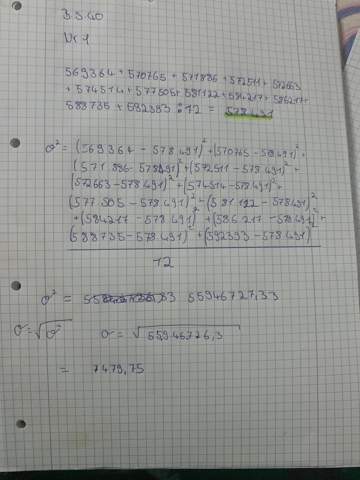 3.3.40
Nr 1
569364 + 570765 + 571836 + 572511 + 572663
+ 574514 + 577505 + 581122 + 584217 + 586217 +
588735 + 592393 : 12 = 578.491
σ² = (569364 - 578.491)² + (570765 - 578.491)² +
(571 836 - 578.491)² + (572511 - 578.491)² +
(572663 - 578.491)² + (574514 - 578.491)² +
(577.505 - 578.491)² + (581.122 - 578.491)²
+ (584217 - 578.491)² + (586.217 - 578.491)² +
(588.735 - 578.491)² + (592393 - 578.491)²
12
σ² = 55946727,33
σ = √σ² σ = √55946726,3
= 7479,75